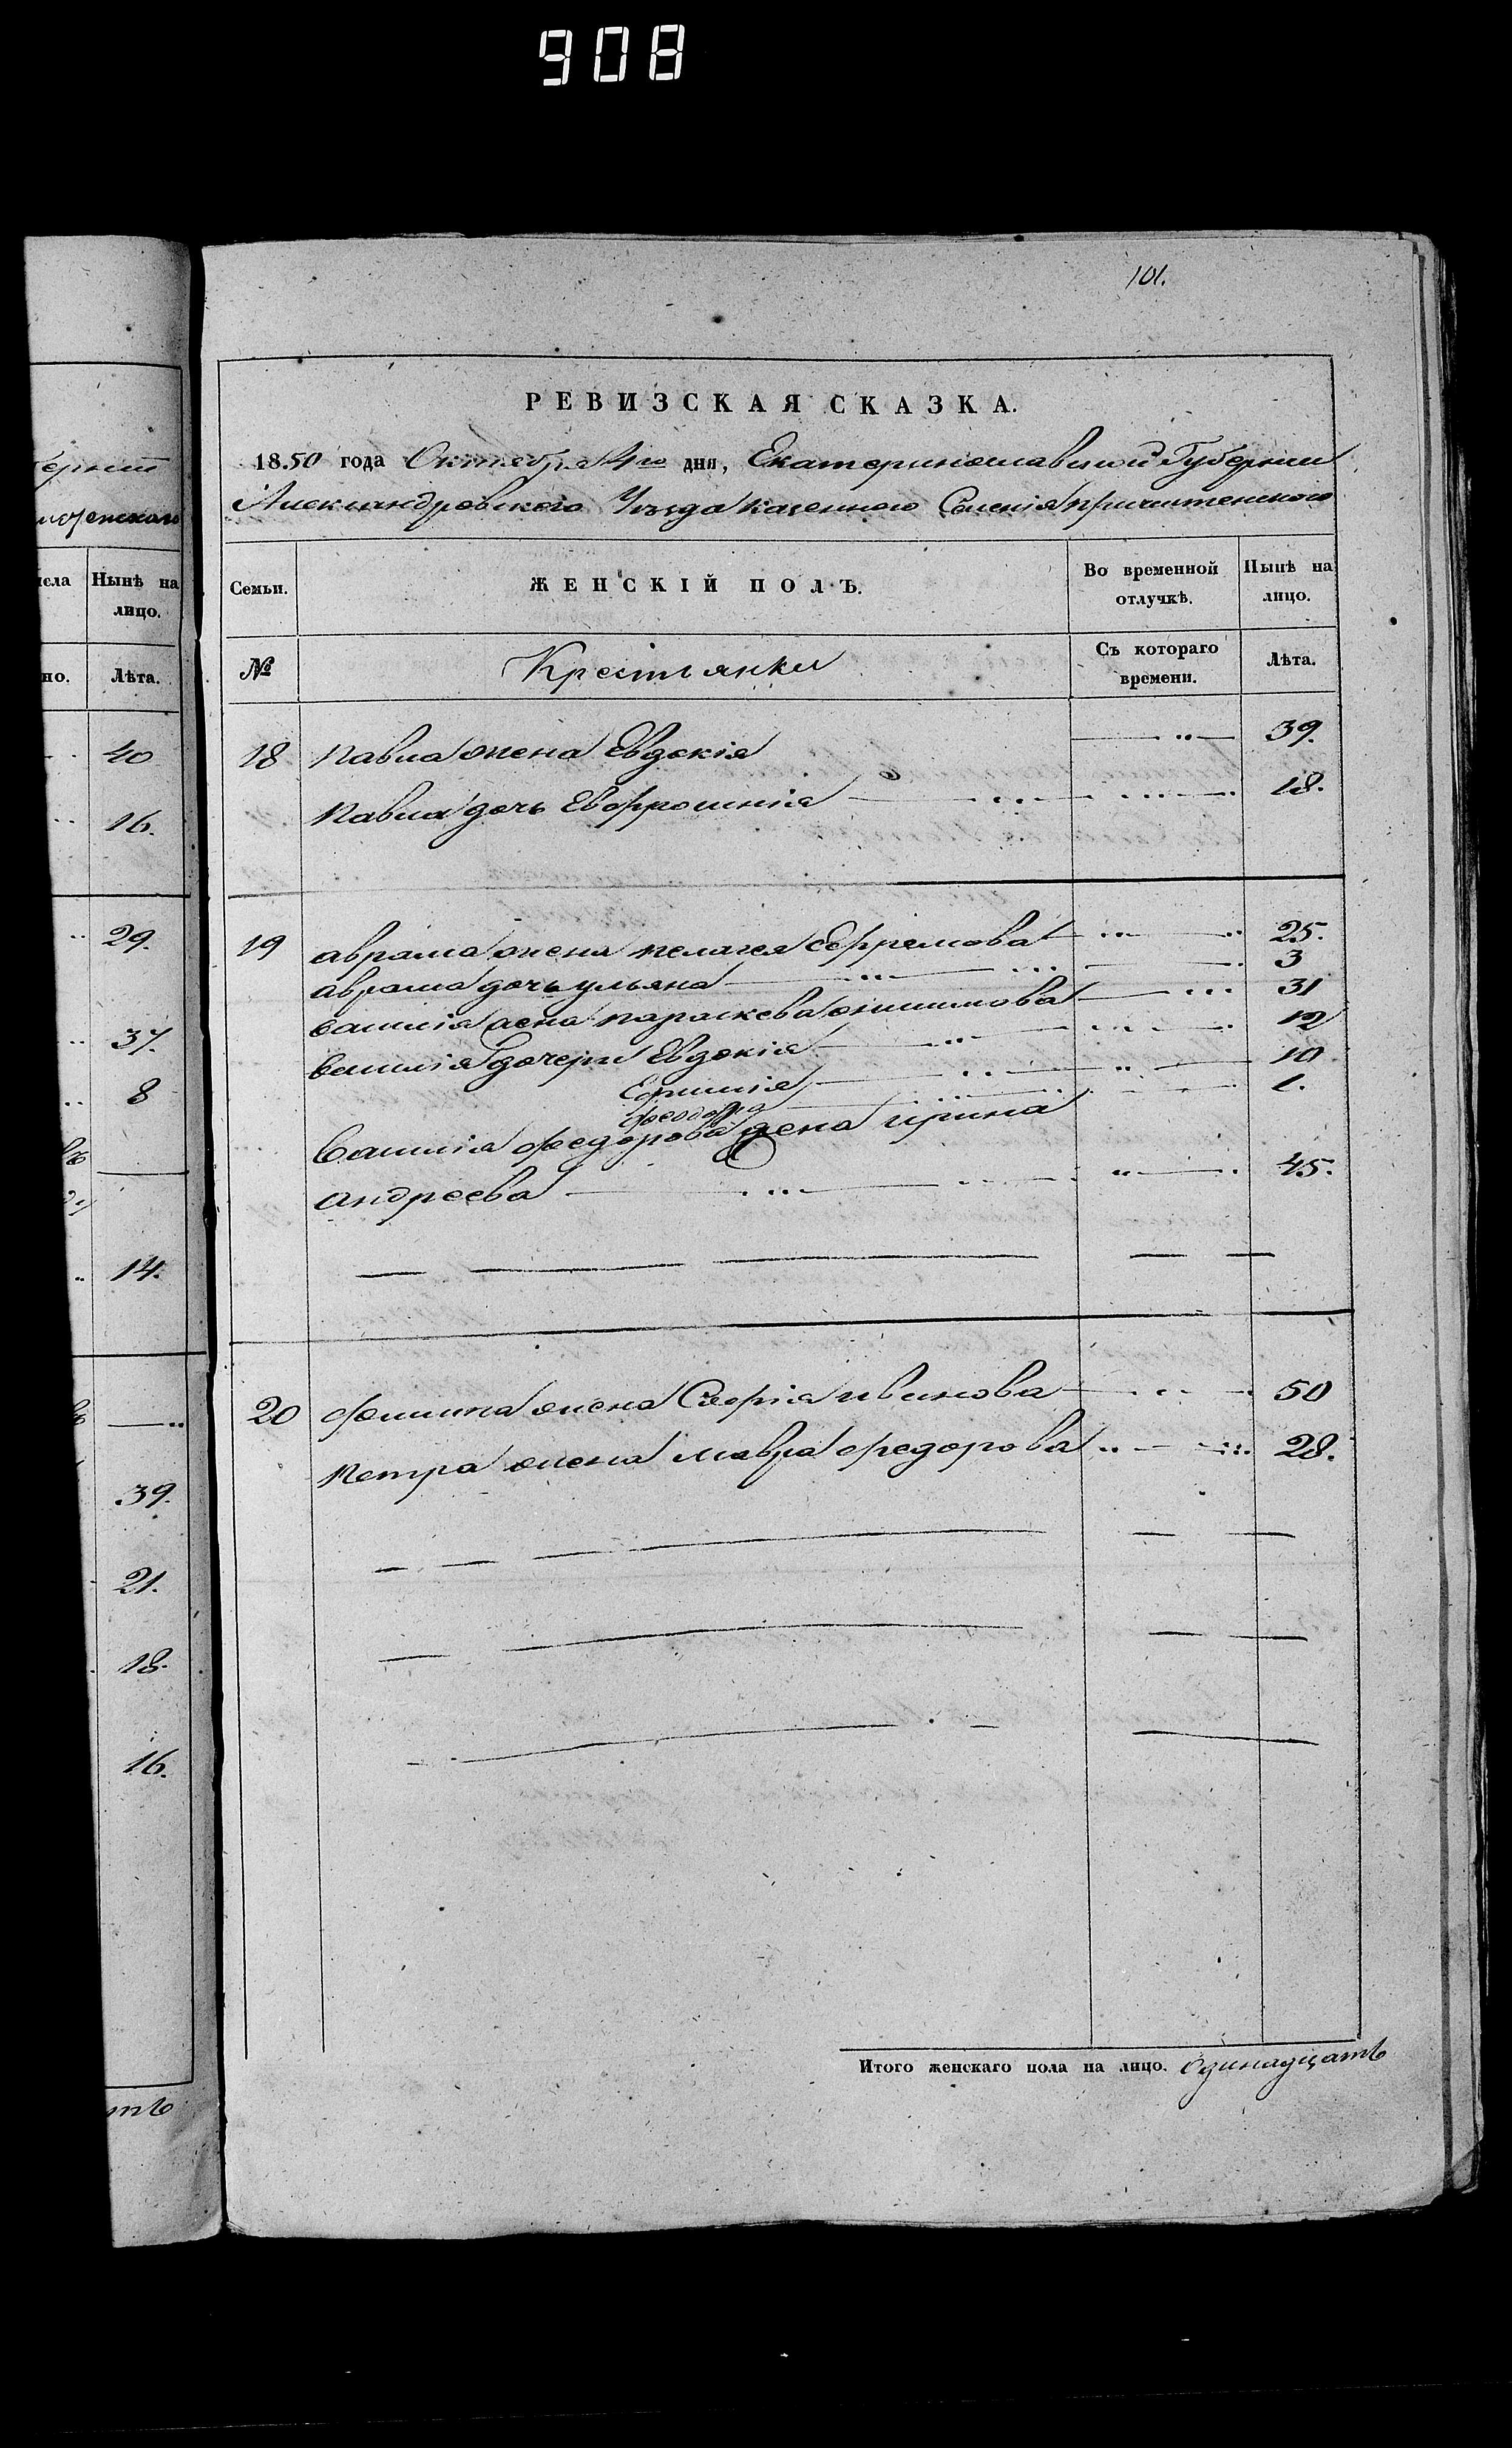 908
101.
РЕВИЗСКАЯ СКАЗКА.
1850 года Октября 4го дня, Екатеринославской Губернии
Александровского Уезда казенного Селения
ЖЕНСКІЙ ПОЛЪ.
Семьи.
Во временной отлучкѣ.
Нынѣ на лицо.
№
Крестьянки
Съ котораго времени.
Лѣта.
18 Павла жена Евдокія 39.
Павла дочь Евфросинія 18.
19 авраама жена пелагея Ефремова 25.
авраама дочь ульяна 3
василія жена параскева 31
василія дочери Евдокія 12
10
феодора 1.
Василія федорова жена ирина
андреева 45.
20 филипа жена Софія иванова 50
петра жена мавра федорова 28.
Итого женскаго пола на лицо. Одинадцать
ерніи
исла
Нынѣ на
лицо.
но.
Лѣта.
40
16.
29.
37.
8
14.
39.
21.
18.
16.
ть